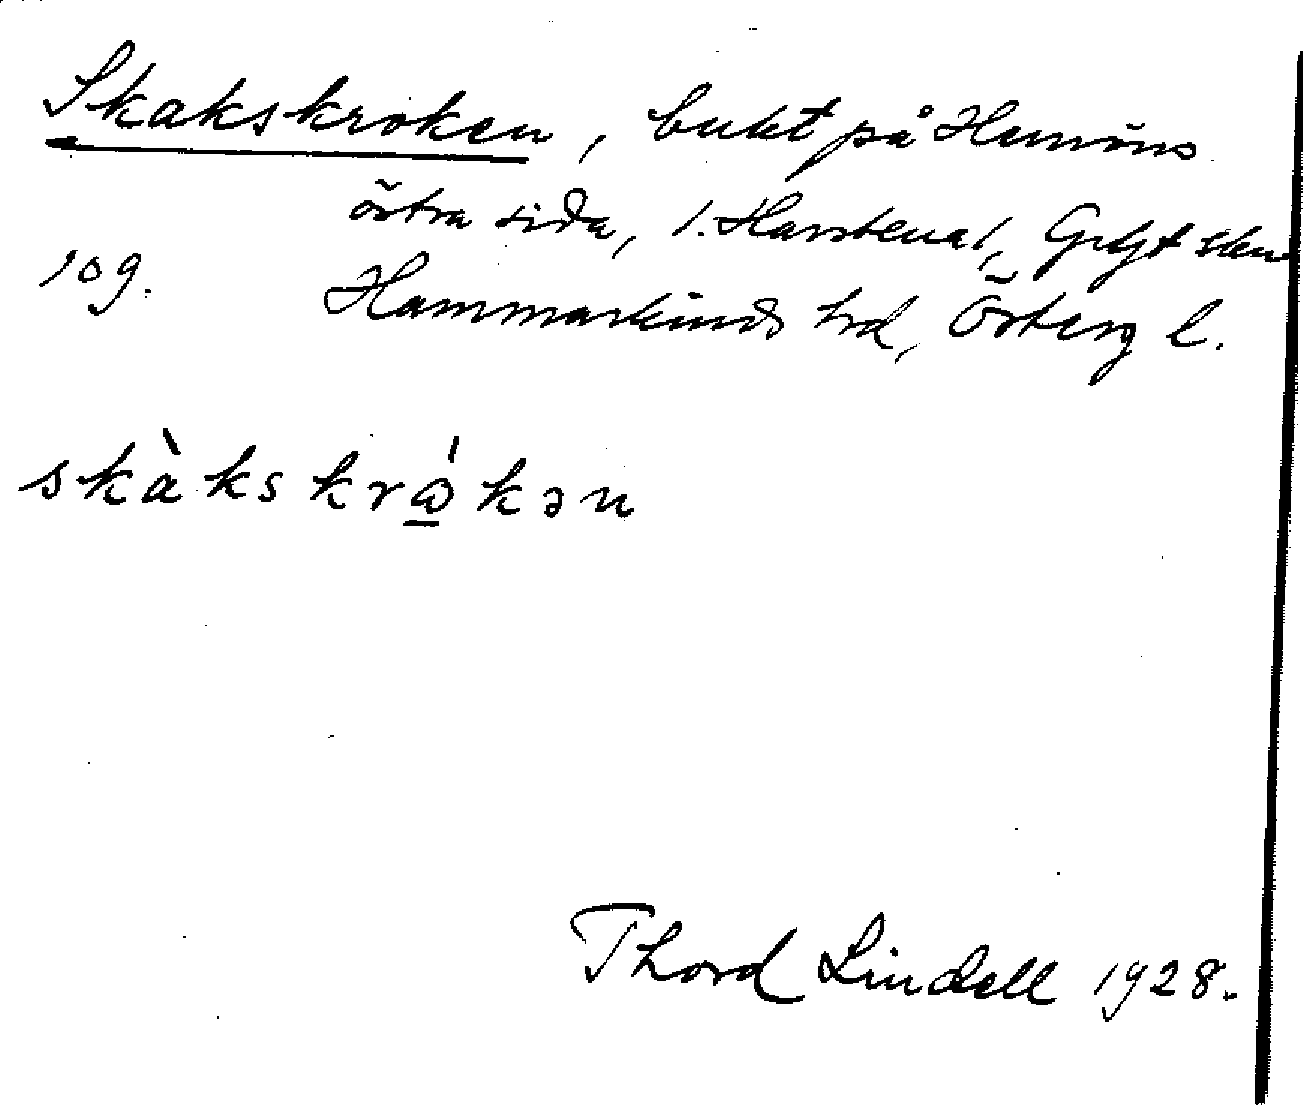 Skakskroken, bukt på Hemöns
östra sida, 1. Harstena 1, Gryt skn
109. Hammarkinds hd, Österg l.
skàkskrώ̲kən
Thord Lindell 1928.